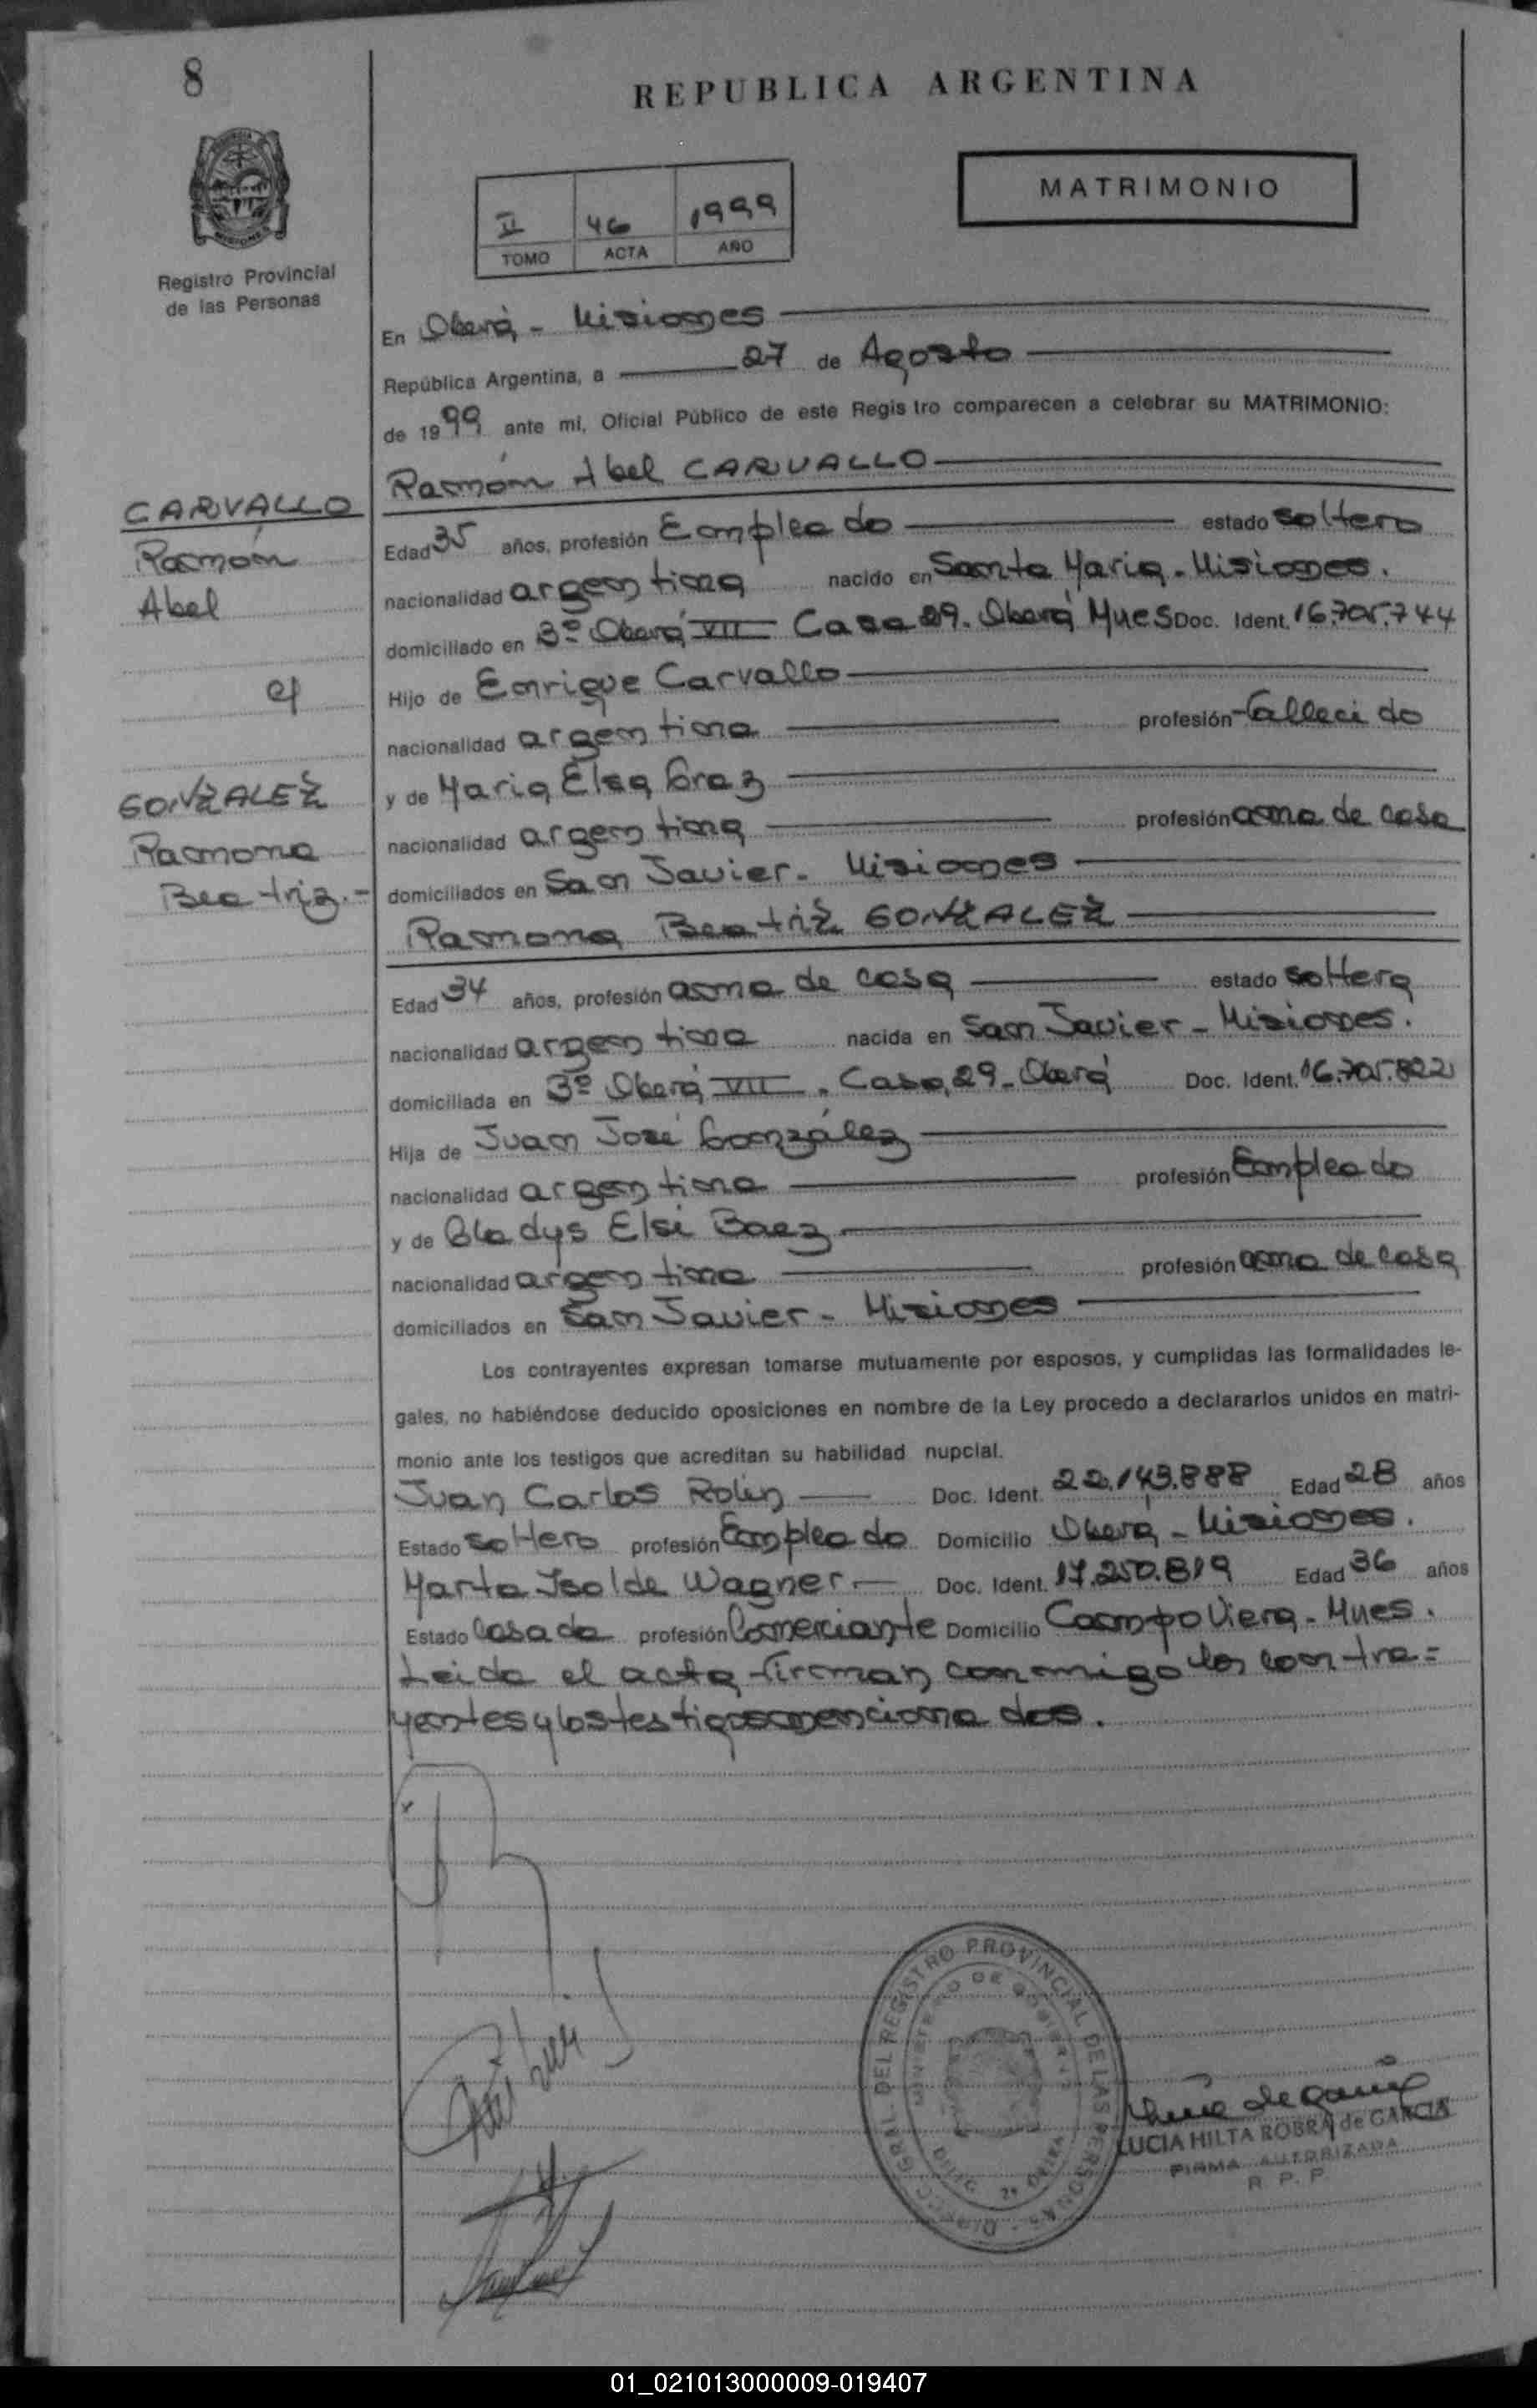 8
REPUBLICA ARGENTINA
MATRIMONIO
II 46 1999
TOMO ACTA AÑO
Registro Provincial
de las Personas
En Oberá - Misiones
República Argentina, a 27 de Agosto
de 1999 ante mí, Oficial Público de este Registro comparecen a celebrar su MATRIMONIO:
Ramón Abel CARVALLO
CARVALLO
Ramón
Abel
c/
GONZALEZ
Ramona
Beatriz.-
Edad 35 años, profesión Empleado estado soltero
nacionalidad argentina nacido en Santa María - Misiones.
domiciliado en 3º Oberá VII Casa 29. Oberá Mnes Doc. Ident. 16.705.744
Hijo de Enrique Carvallo
nacionalidad argentina profesión fallecido
y de María Elsa
nacionalidad argentina profesión ama de casa
domiciliados en San Javier - Misiones
Ramona Beatriz GONZALEZ
Edad 34 años, profesión ama de casa estado soltera
nacionalidad argentina nacida en San Javier - Misiones.
domiciliada en 3º Oberá VII. Casa 29 - Oberá Doc. Ident. 16.705.822
Hija de Juan José González
nacionalidad argentina profesión Empleado
y de Gladys Elsi Baez
nacionalidad argentina profesión ama de casa
domiciliados en San Javier - Misiones
Los contrayentes expresan tomarse mutuamente por esposos, y cumplidas las formalidades le-
gales, no habiéndose deducido oposiciones en nombre de la Ley procedo a declararlos unidos en matri-
monio ante los testigos que acreditan su habilidad nupcial.
Juan Carlos Rolin Doc. Ident. 22.143.888 Edad 28 años
Estado soltero profesión Empleado Domicilio Oberá - Misiones.
Marta Isolde Wagner Doc. Ident. 17.250.819 Edad 36 años
Estado Casada profesión Comerciante Domicilio Campo Viera - Mnes.
Leida el acta firman conmigo los contra=
yentes y los testigos mencionados.
DIRECC. GRAL. DEL REGISTRO PROVINCIAL DE LAS PERSONAS
MINISTERIO DE GOBIERNO
LUCIA HILTA ROBRA de GARCIA
FIRMA AUTORIZADA
R. P. P.
01_021013000009-019407